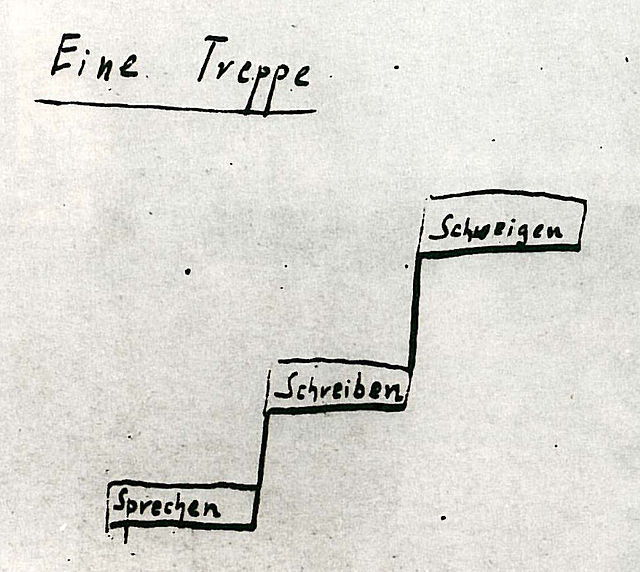 Eine Treppe
Schweigen
Schreiben
Sprechen